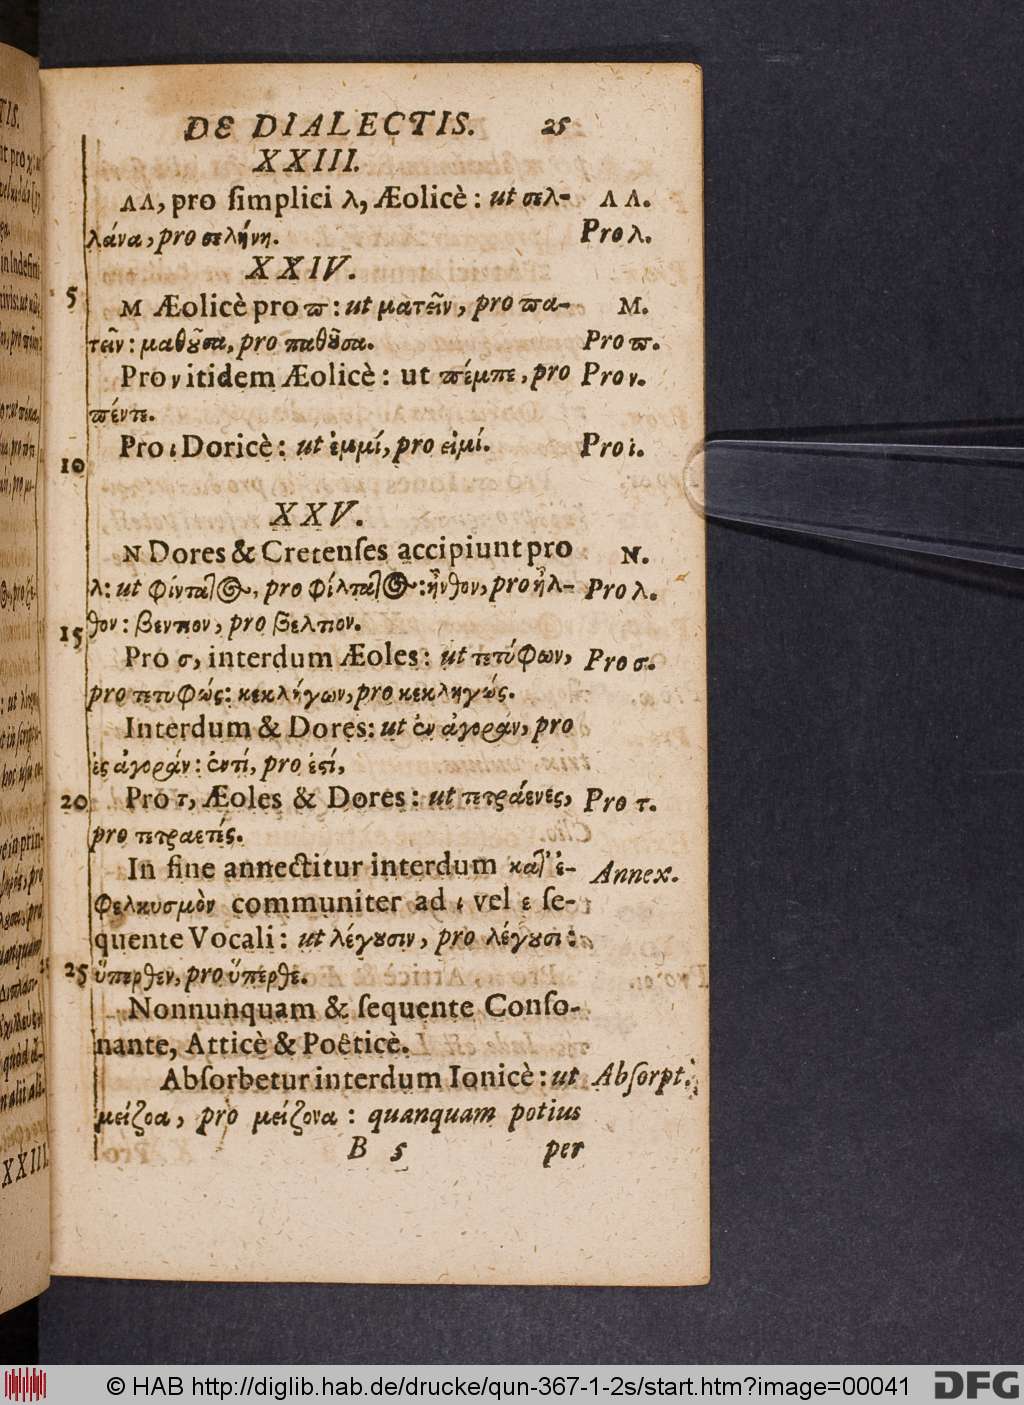 DE DIALECTIS. 25
XXIII.
ΛΛ, pro ſimplici λ, Æolicè : ut σελ- ΛΛ.
λάνα, pro σελήνη. Pro λ.
XXIV.
5 M Æolicè pro ϖ : ut ματεῖν, pro ϖα- M.
τεῖν : μαθοῦσα, pro παθοῦσα. Pro ϖ.
Pro ν itidem Æolicè : ut ϖέμπε, pro Pro ν.
ϖέντε.
10 Pro ι Doricè : ut ἐμμί, pro εἰμί. Pro ι.
XXV.
N Dores & Cretenſes accipiunt pro N.
λ : ut φίνταтος, pro φίλτατος : ἦνθον, pro ἦλ- Pro λ.
15 θον : βεντιον, pro βελτιον.
Pro σ, interdum Æoles : ut τετύφων, Pro σ.
pro τετυφώς : κεκλήγων, pro κεκληγώς.
Interdum & Dores : ut ἐν ἀγοράν, pro
ἐς ἀγοράν : ἐντί, pro ἐστί,
20 Pro τ, Æoles & Dores : ut πετράενες, Pro τ.
pro πετραετίς.
In fine annectitur interdum κατ' ἐ- Annex.
φελκυσμὸν communiter ad ι vel ε ſe-
quente Vocali : ut λέγουσιν, pro λέγουσι :
25 ὕπερθεν, pro ὕπερθε.
Nonnunquam & ſequente Conſo-
nante, Atticè & Poêticè.
Abſorbetur interdum Ionicè : ut Abſorpt.
μείζοα, pro μείζονα : quanquam potius
B 5 per
XXIII.
© HAB http://diglib.hab.de/drucke/qun-367-1-2s/start.htm?image=00041
DFG